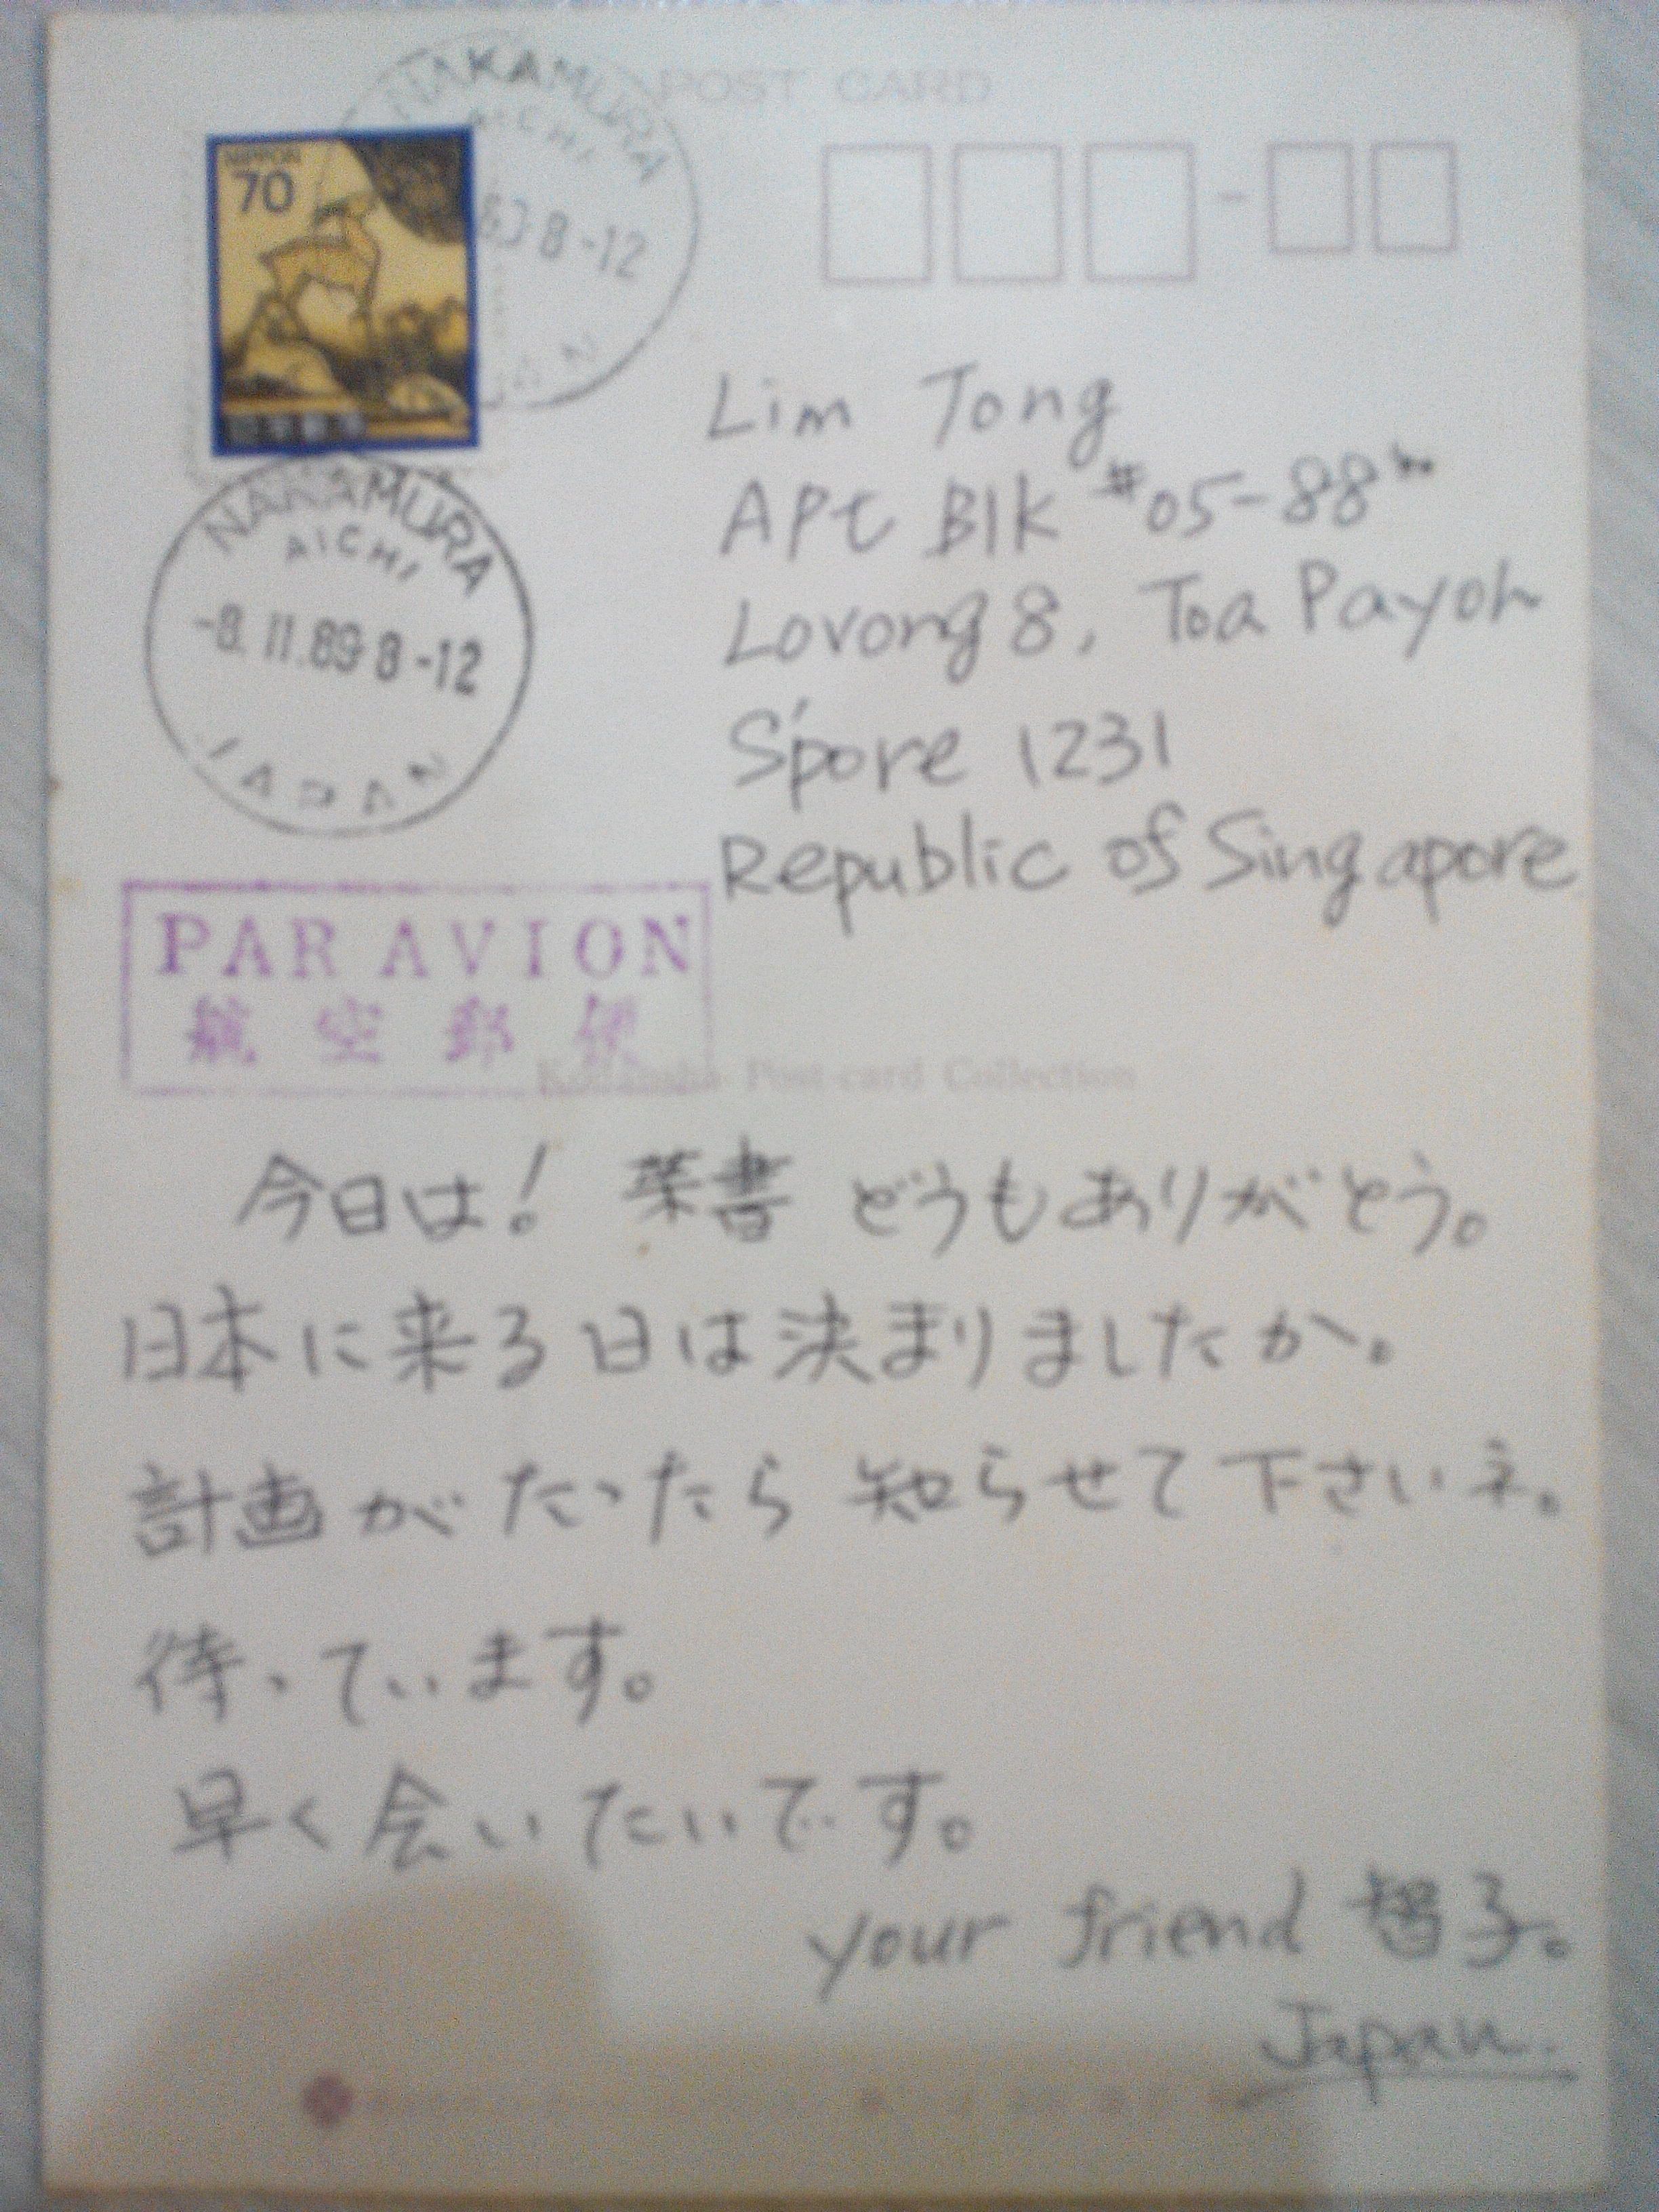 POST CARD
NAKAMURA
AICHI
8-12
NIPPON
70
NAKAMURA
AICHI
-8.11.89 8-12
JAPAN
Lim Tong
APt Blk #05-88
Lorong 8, Toa Payoh
S'pore 1231
Republic of Singapore
PAR AVION
航空郵便
Kodansha Post-card Collection
今日は! 葉書 どうもありがとう。
日本に来る日は決まりましたか。
計画がたったら 知らせて下さいネ。
待っています。
早く会いたいです。
your friend 智子。
Japan.